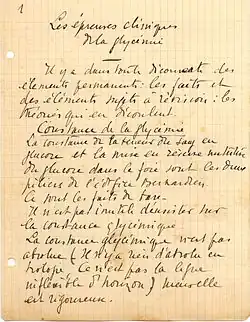 1
Les épreuves cliniques
de la glycémie
Il y a dans toute découverte des
éléments permanents : les faits et
des éléments sujets à révision : les
théories qui en découlent.
Constance de la glycémie
La constance de la teneur du sang en
glucose et la mise en réserve
du glucose dans le foie sont les deux
piliers de l'édifice Bernardien.
Ce sont les faits de base.
Il n'est pas inutile d'insister sur
la constance glycémique.
La constance glycémique n'est pas
absolue (Il n'y a rien d'absolu en
biologie. Ce n'est pas la ligne
inflexible d'horizon)
en rigoureux.